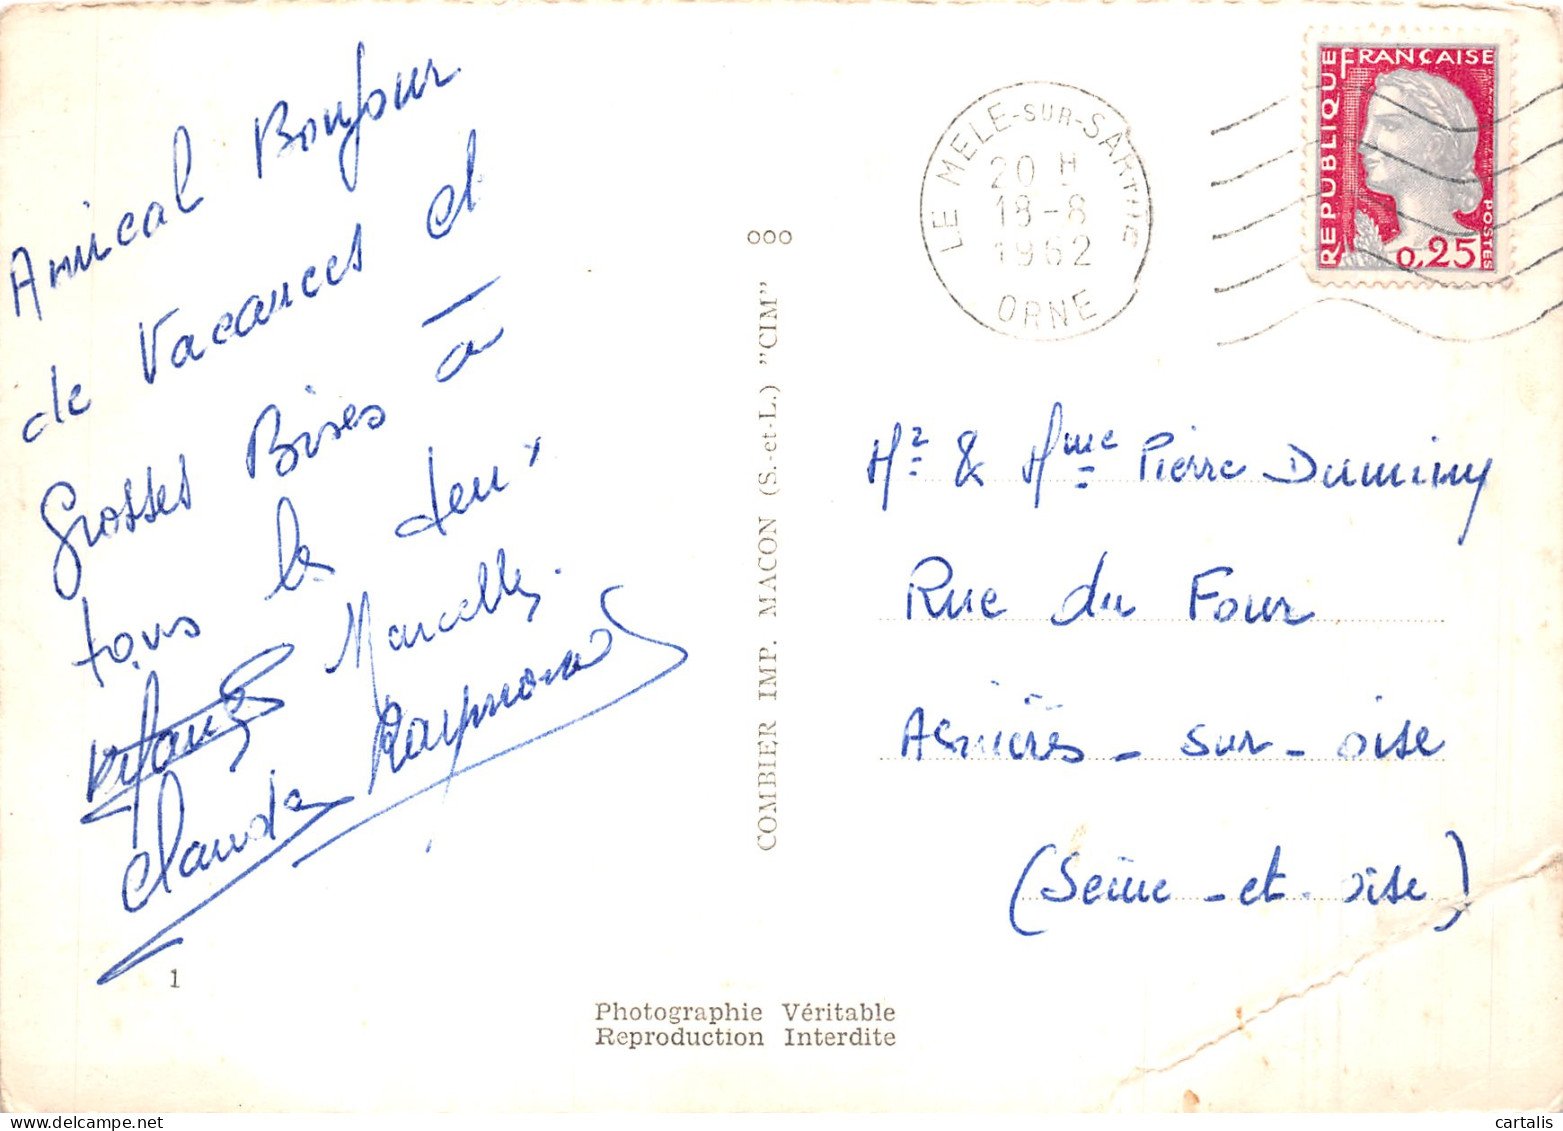 Amical Bonjour
de Vacances et
Grosses Bises à
tous les deux
Marcelle.
Claude Raymond
1
ooo
COMBIER IMP. MACON (S.-et-L.) "CIM"
Photographie Véritable
Reproduction Interdite
LE MELE-SUR-SARTHE
20 H
18-8
1962
ORNE
REPUBLIQUE FRANÇAISE
POSTES
0,25
Mr & Mme Pierre Duminy
Rue du Four
Asnières-sur-oise
(Seine-et-oise)
cartalis